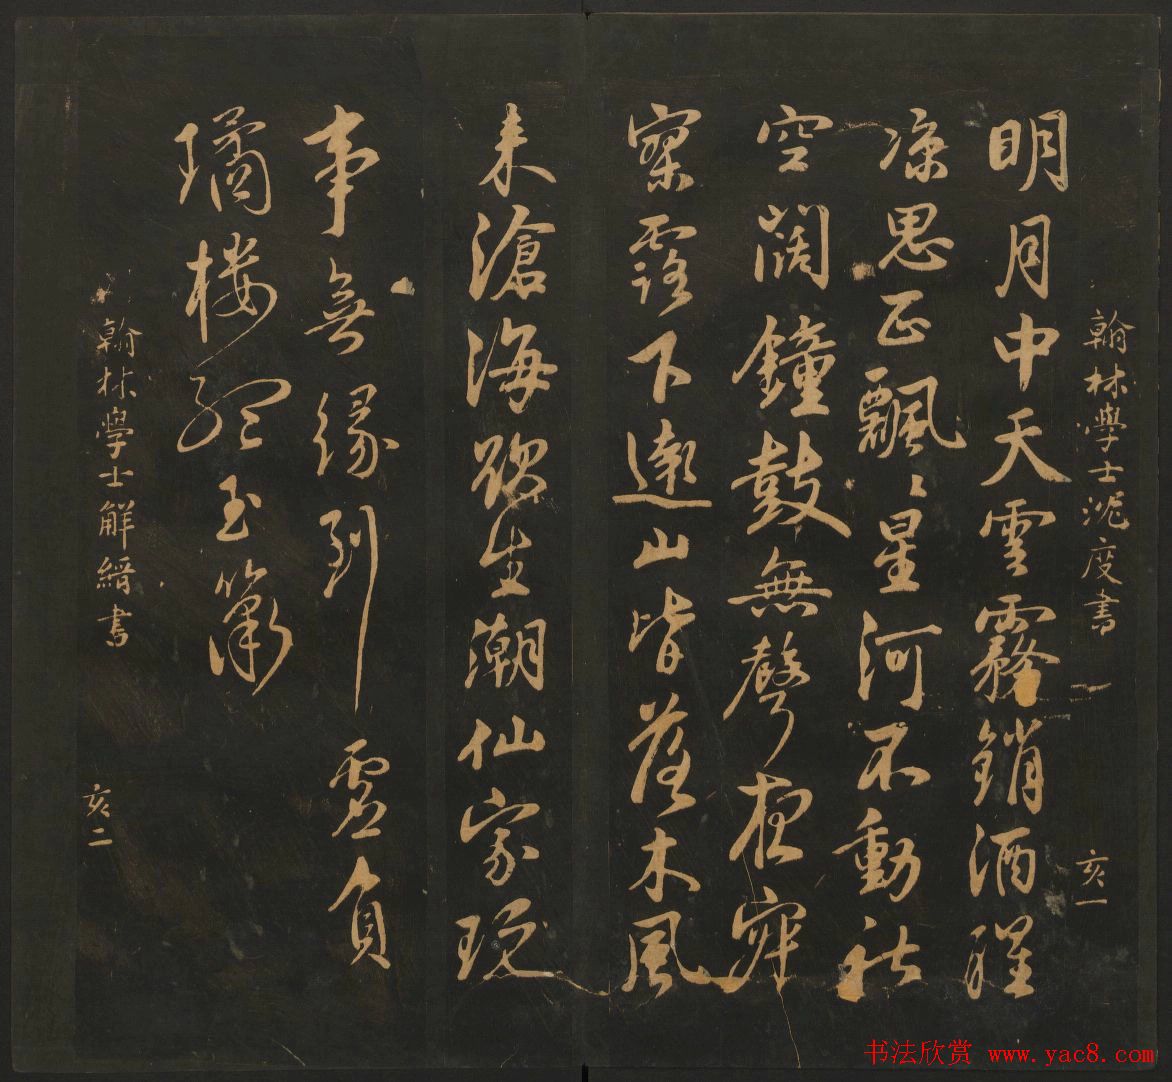 翰林學士沈度書
亥一
明月中天雲霧銷酒醒
凉思正飄〻星河不動秋
空闊鐘鼓無聲夜寂
寥露下遠山皆落木風
来滄海欲生潮仙家玩
事無緣到虛負
璚楼玉簫
翰林學士解縉書
亥二
书法欣赏 www.yac8.com